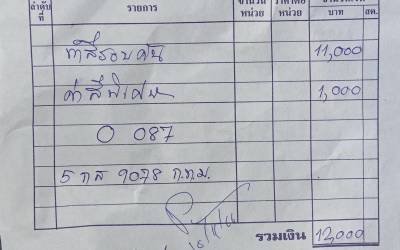 ลำดับที่ รายการ จำนวนหน่วย ราคาต่อหน่วย จำนวนเงิน
บาท สต.
ทำสีรอบคัน 11,000
ค่าสีพิเศษ 1,000
0 087
5 กส 9078 ก.ท.ม.
รวมเงิน 12,000